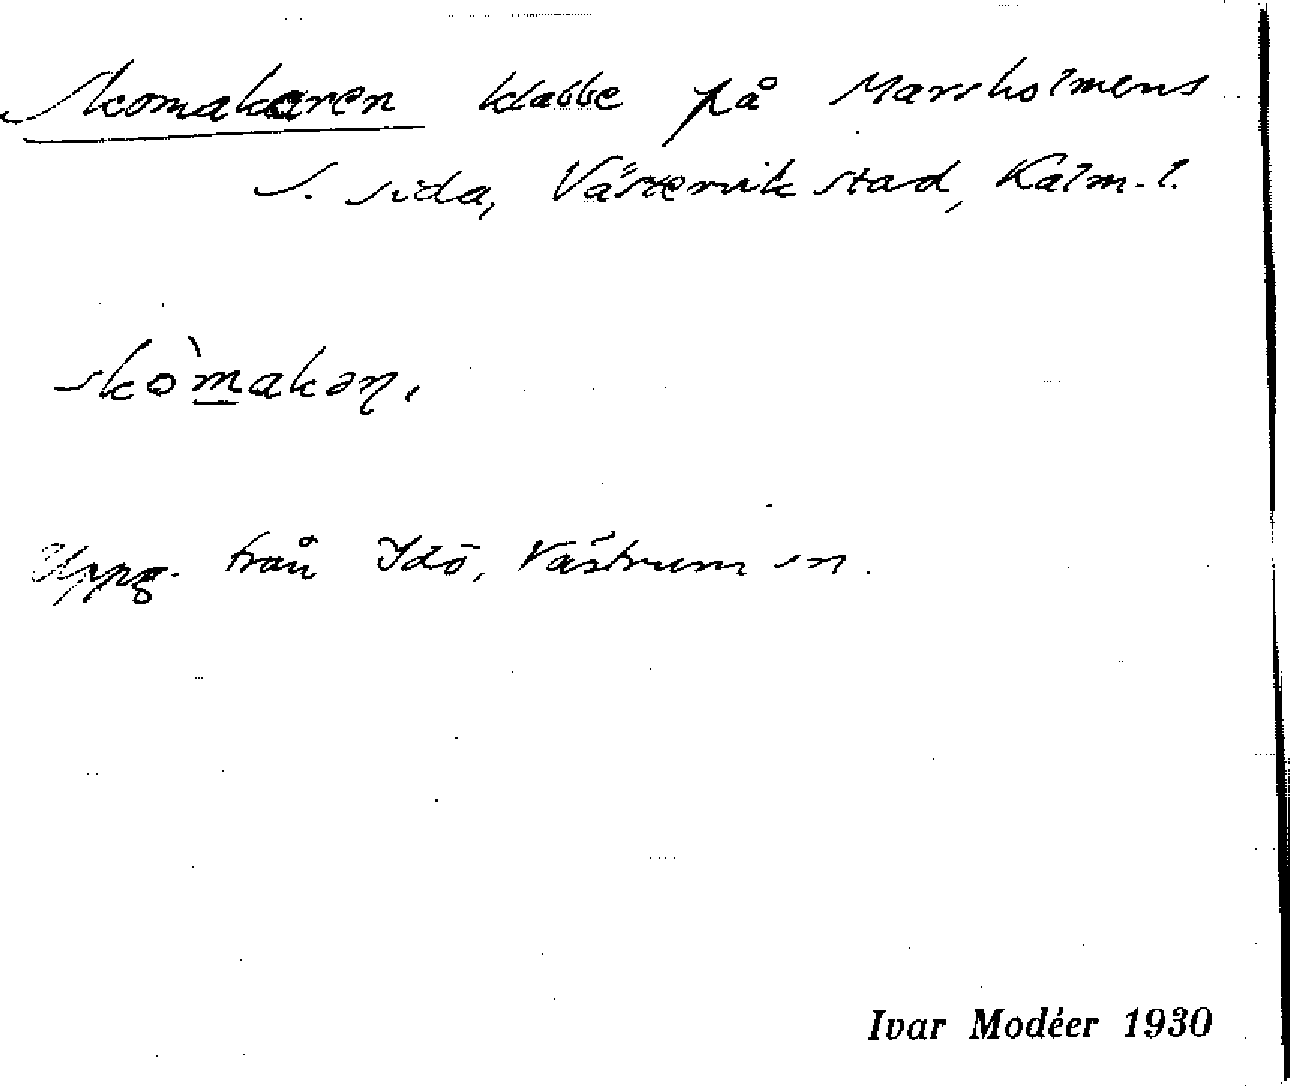 Skomakaren klabbe på Marsholmens
S. sida, Västervik stad, Kalm. l.
skò̀makaṇ.
Uppg. från Idö, Västrum sn.
Ivar Modéer 1930